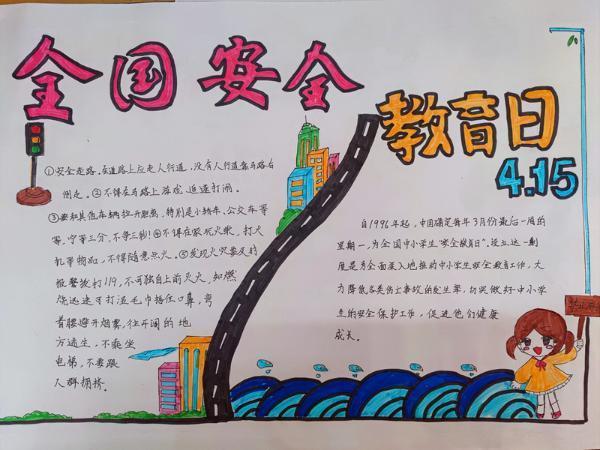 全国安全
教育日
4.15
①安全走路,在道路上应走人行道,没有人行道靠马路右
侧走。②不得在马路上游戏追逐打闹。
③要和其他车辆拉开距离,特别是小轿车、公交车等
等,宁等三分,不争三秒!④不得在家玩火柴,打火
机等物品,不得随意点火。⑤发现火灾要及时
报警拨打119,不可独自上前灭火,如燃
烧迅速可打湿毛巾捂住口鼻,弯
着腰避开烟雾,往开阔的地
方逃生,不乘坐
电梯,不要跟
人群拥挤。
自1996年起,中国确定每年3月份最后一周的
星期一,为全国中小学生"安全教育日"。设立这一制
度是为全面深入地推动中小学生安全教育工作,大
力降低各类伤亡事故的发生率,切实做好中小学
生的安全保护工作,促进他们健康
成长。